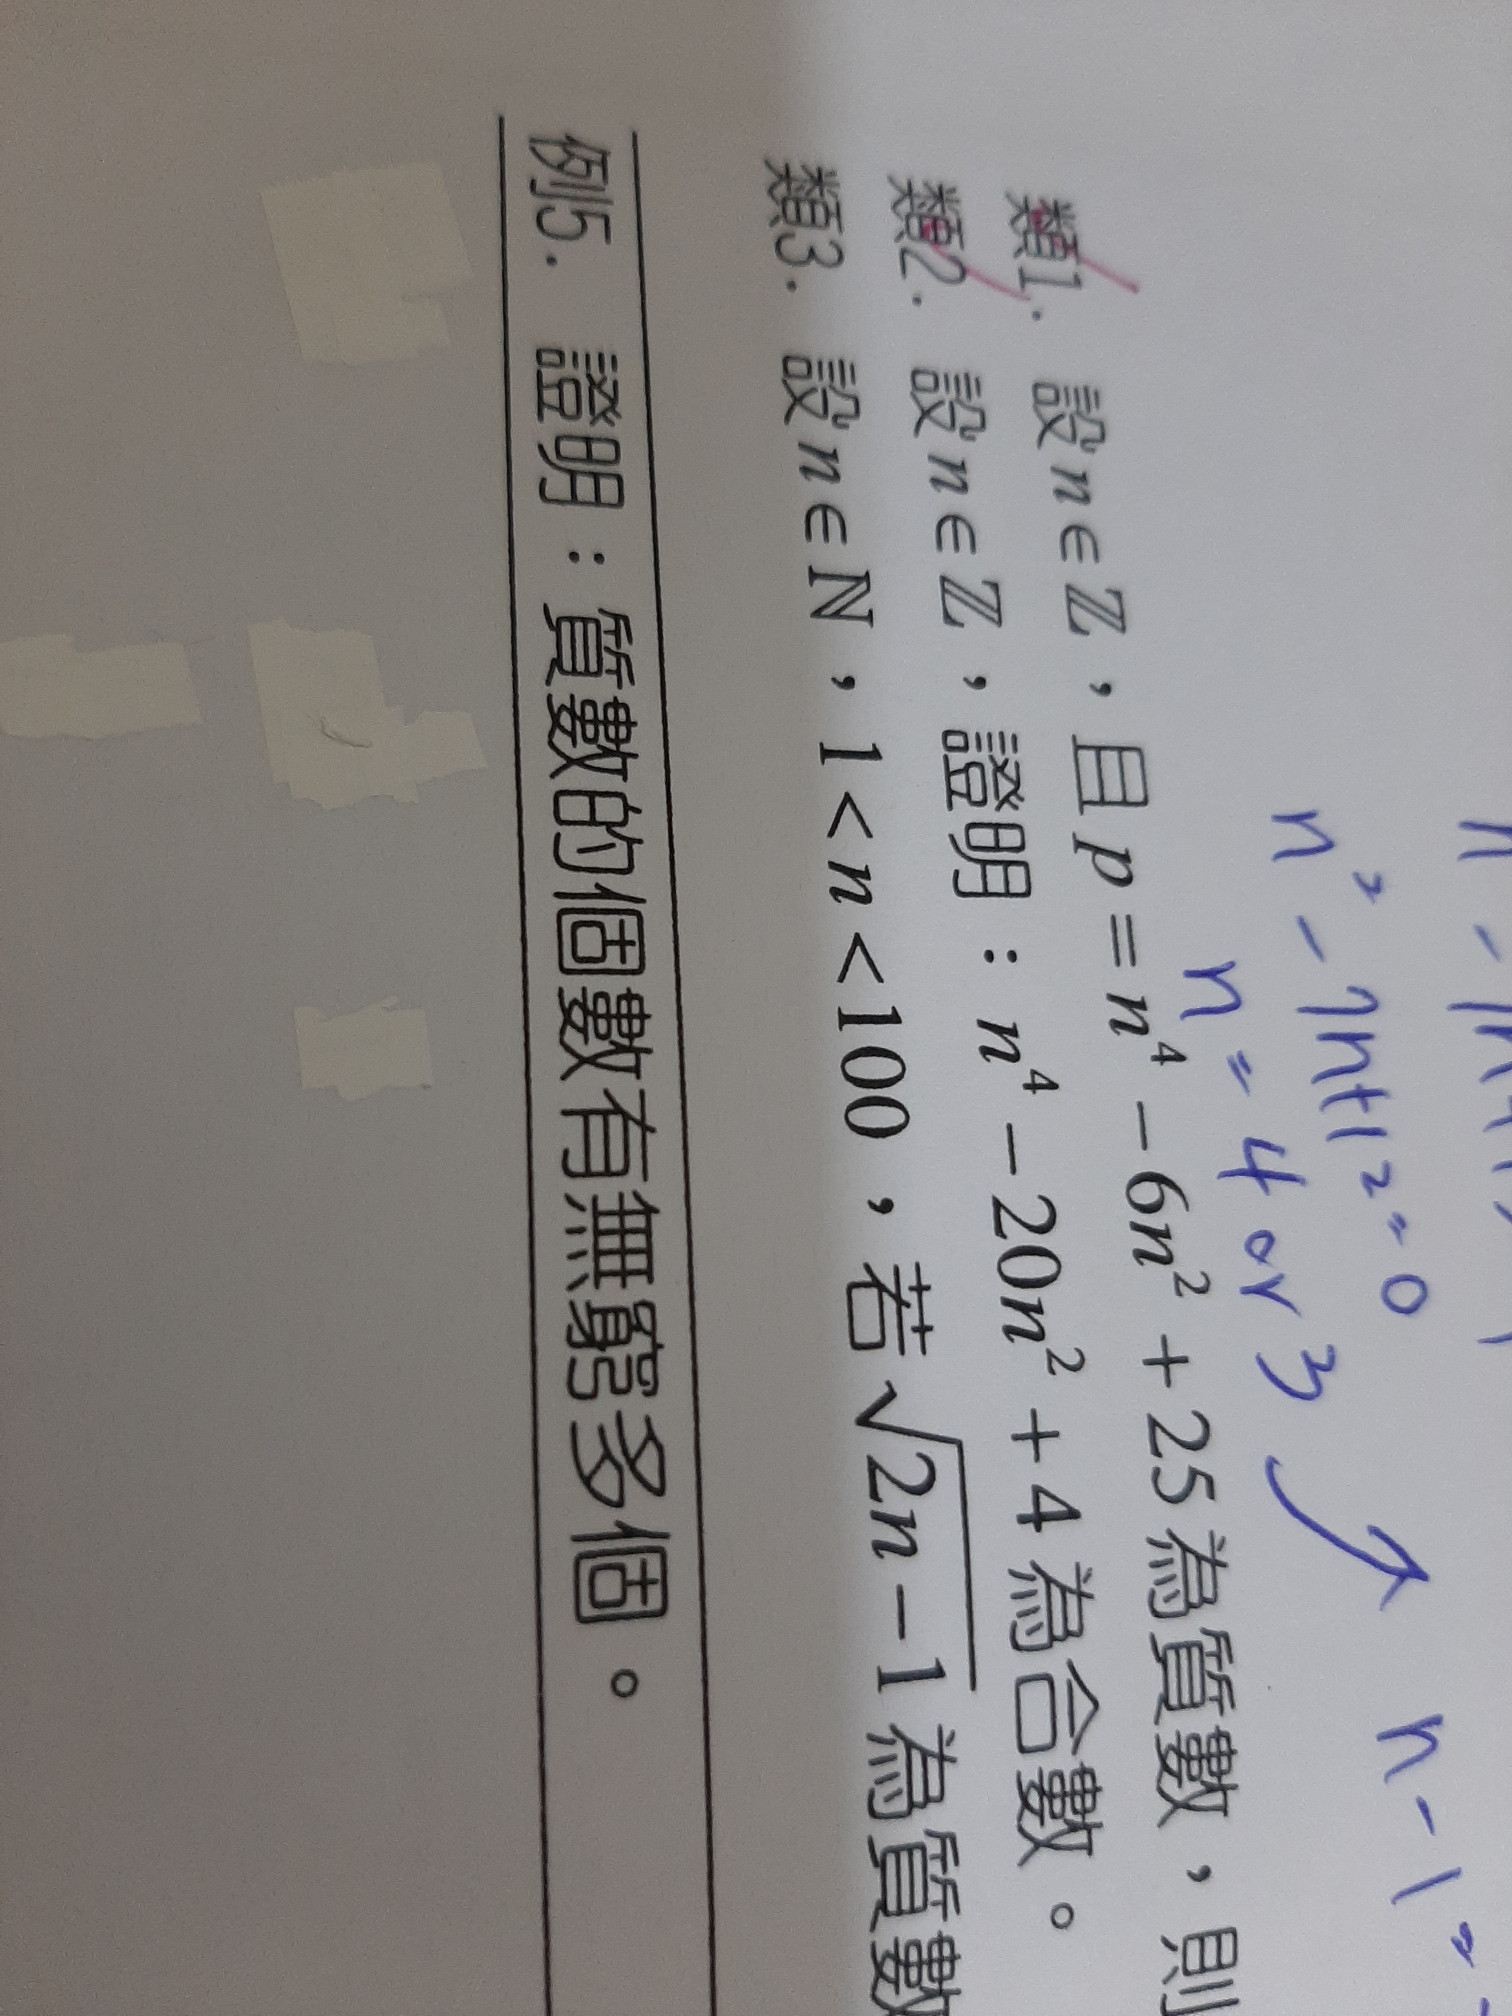 n² - 7n + 12 = 0
n = 4 or 3
n - 1 =
類1. 設n∈ℤ，且p = n⁴ - 6n² + 25為質數，則
類2. 設n∈ℤ，證明：n⁴ - 20n² + 4為合數。
類3. 設n∈ℕ，1 < n < 100，若√(2n-1)為質數
例5. 證明：質數的個數有無窮多個。